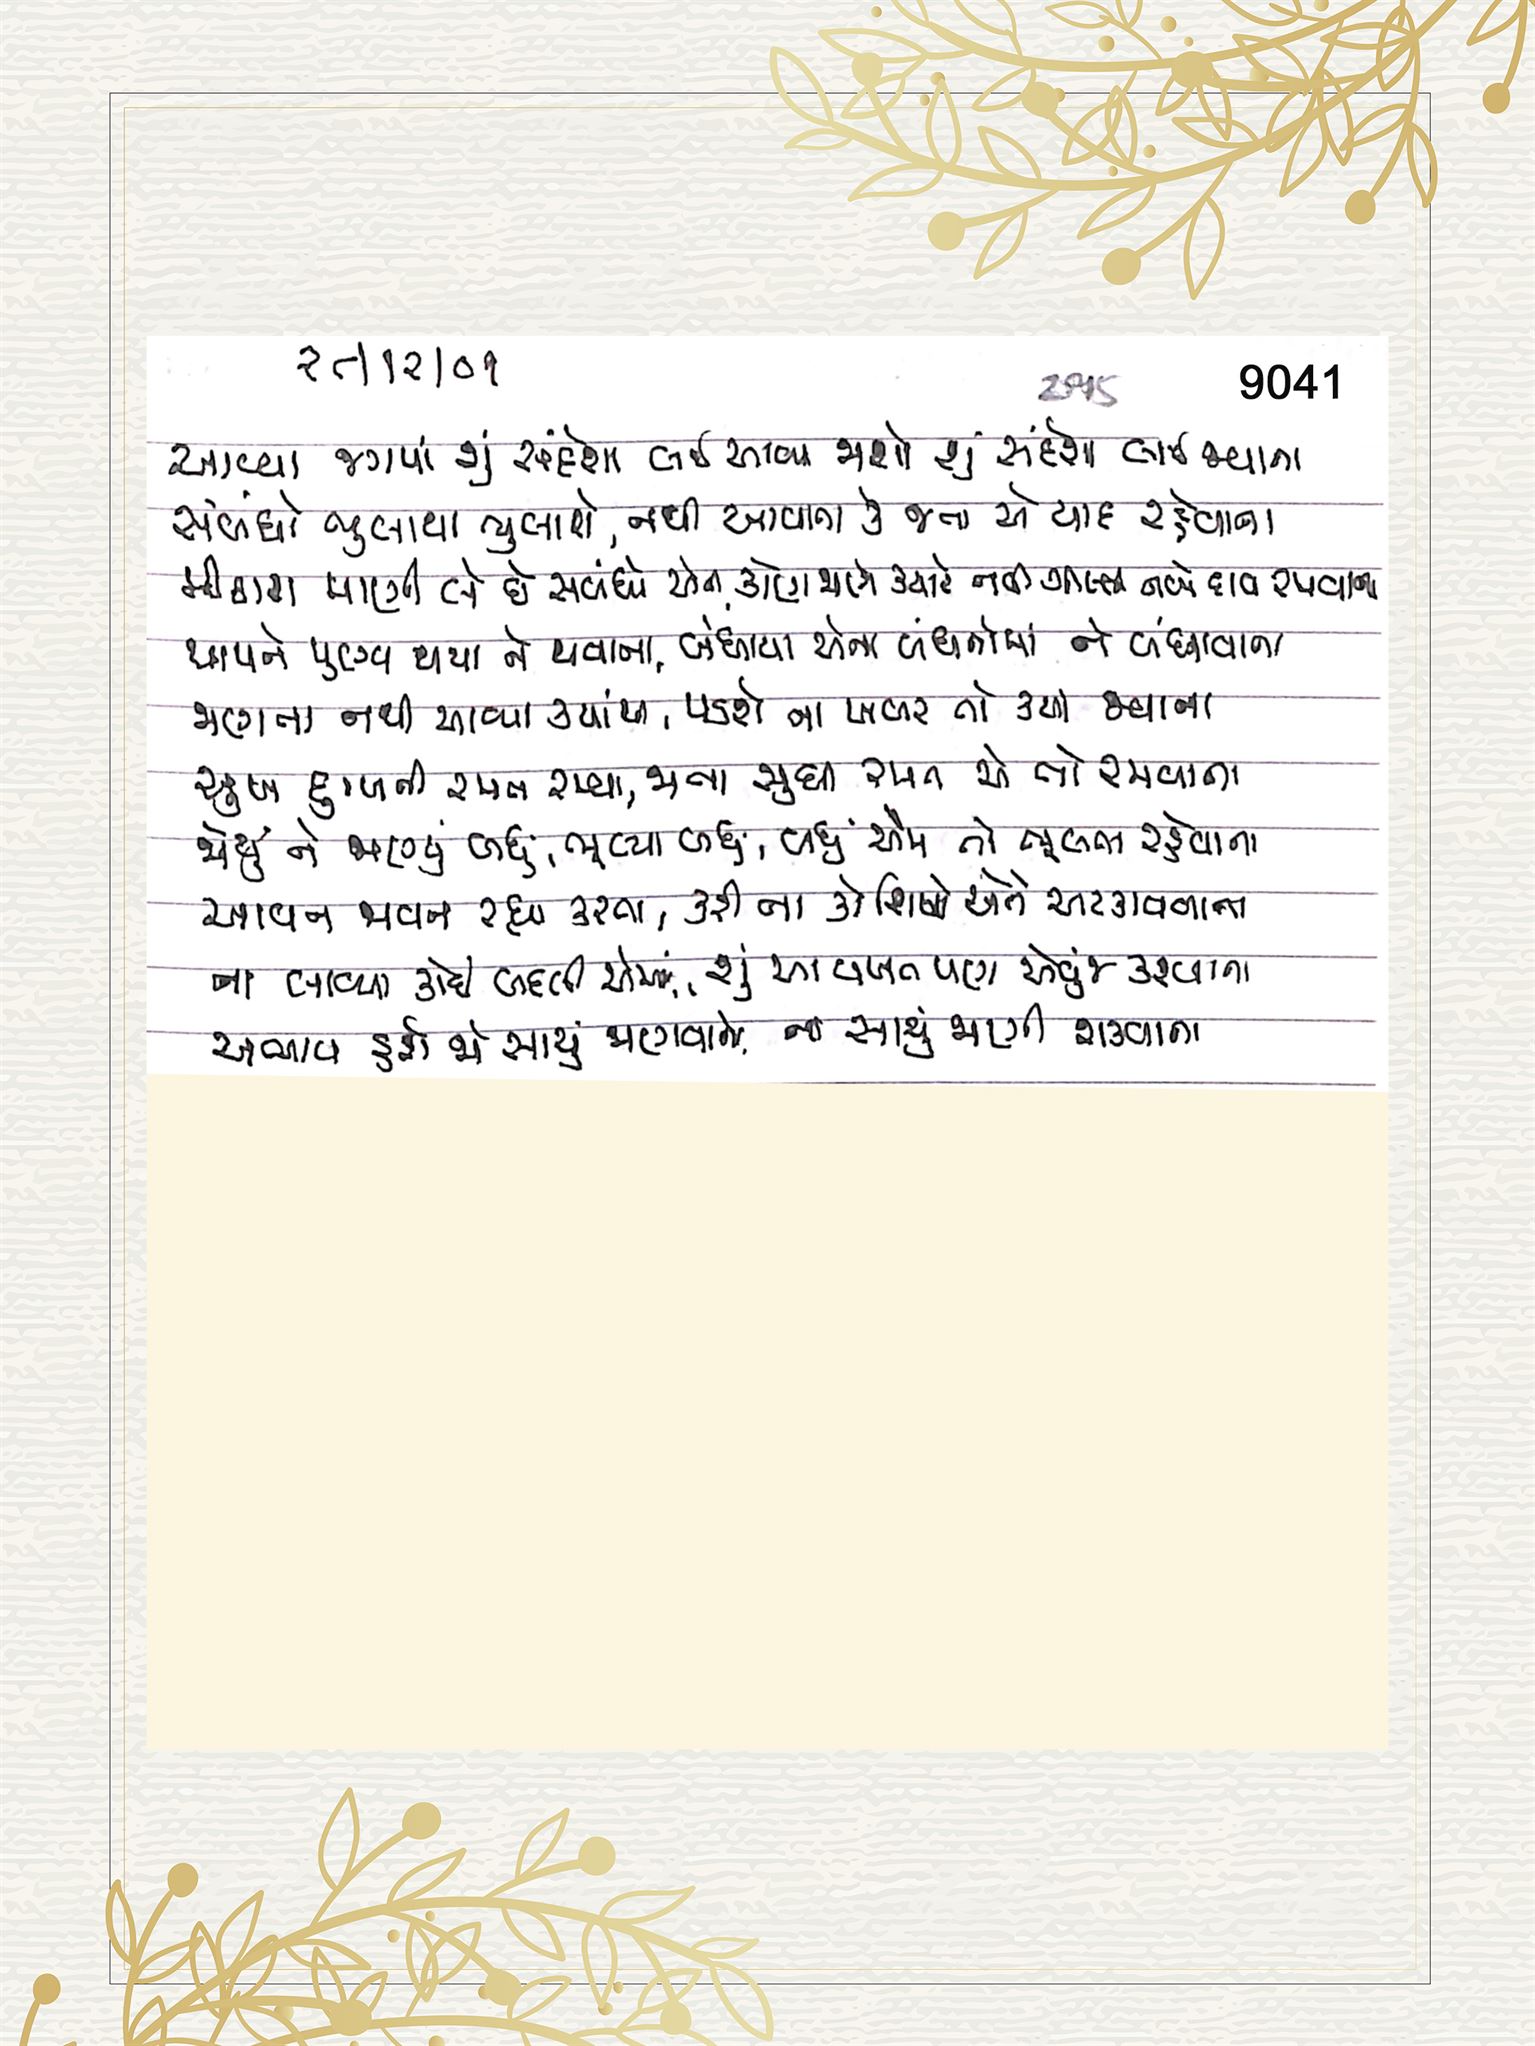 ૨૮/૧૨/૦૧
9041
આવ્યા જગમાં શું સંદેશા લઈ આવ્યા જાશો શું સંદેશા લઈ જાવાના
સંબંધો ભુલાયા ભુલાશે, નથી આવવાના કે જના એ યાદ રહેવાના
મીઠાશ માણી લે છે સબંધો એના, કોણ જાણે ક્યારે નવો દાવ રમવાના
પાપને પુણ્ય થયા ને થવાના, બંધાયા એના બંધનોમાં ને બંધાવાના
જાણતા નથી આવ્યા ક્યાંથી, પડશે ના ખબર તો ક્યાં જાવાના
સુખ દુઃખની રમત રમ્યા, જાતા સુધી રમત એ તો રમવાના
જોયું ને જાણ્યું બધું, ભૂલ્યા બધું, બધું એમ તો ભૂલતા રહેવાના
આવન જાવન રહ્યા કરતા, કરી ના કોશિશો એને અટકાવવાના
ના લાવ્યા કોઈ બદલી એમાં, શું આ વખત પણ એવુંજ કરવાના
અભાવ હશે જો સાચું જાણવાનો, ના સાચું જાણી શકવાના